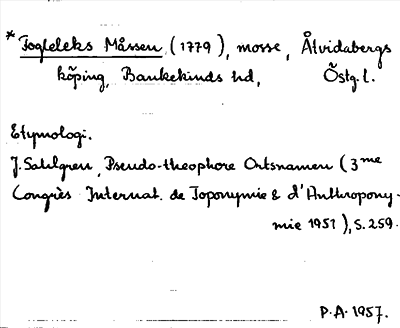 * Fogleleks Måssen, (1779), mosse, Åtvidabergs
köping, Bankekinds hd, Östg. l.
Etymologi.
J. Sahlgren, Pseudo-theophore Ortsnamen (3me
Congrès Internat. de Toponymie & d'Anthropony-
mie 1951), S. 259.
P.A. 1957.